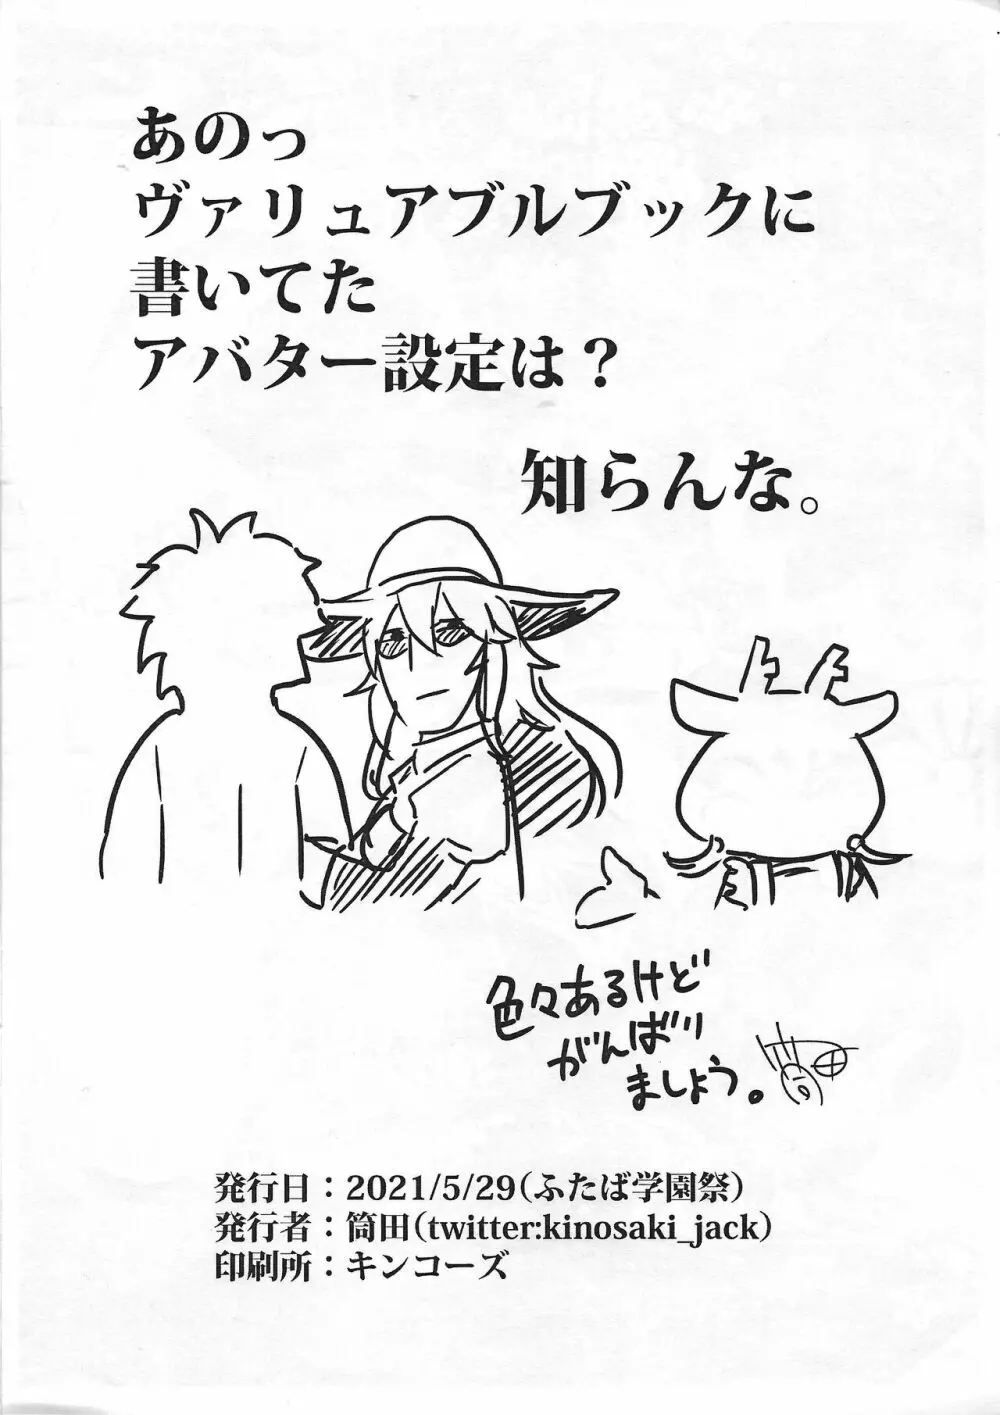 あのっ
ヴァリュアブルブックに
書いてた
アバター設定は？
知らんな。
色々あるけど
がんばり
ましょう。
発行日：2021/5/29（ふたば学園祭）
発行者：筒田（twitter:kinosaki_jack）
印刷所：キンコーズ